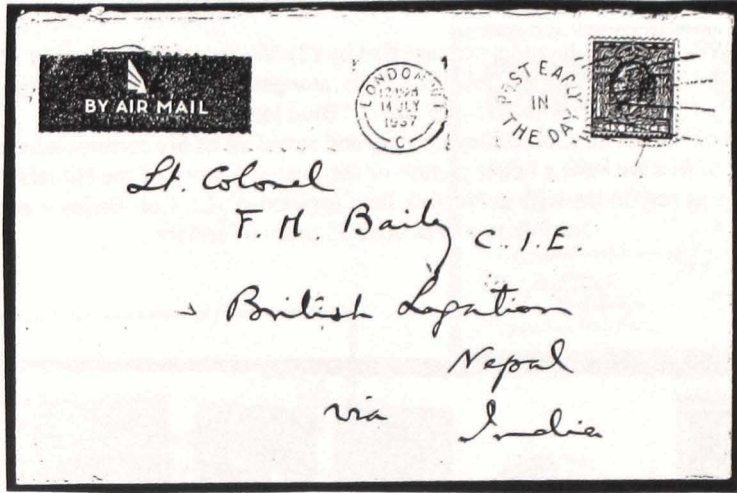 BY AIR MAIL
LONDON
14 JLY
1937
C
POST EARLY
IN
THE DAY
Lt. Colonel
F. M. Baily C.I.E.
British Legation
Nepal
via India